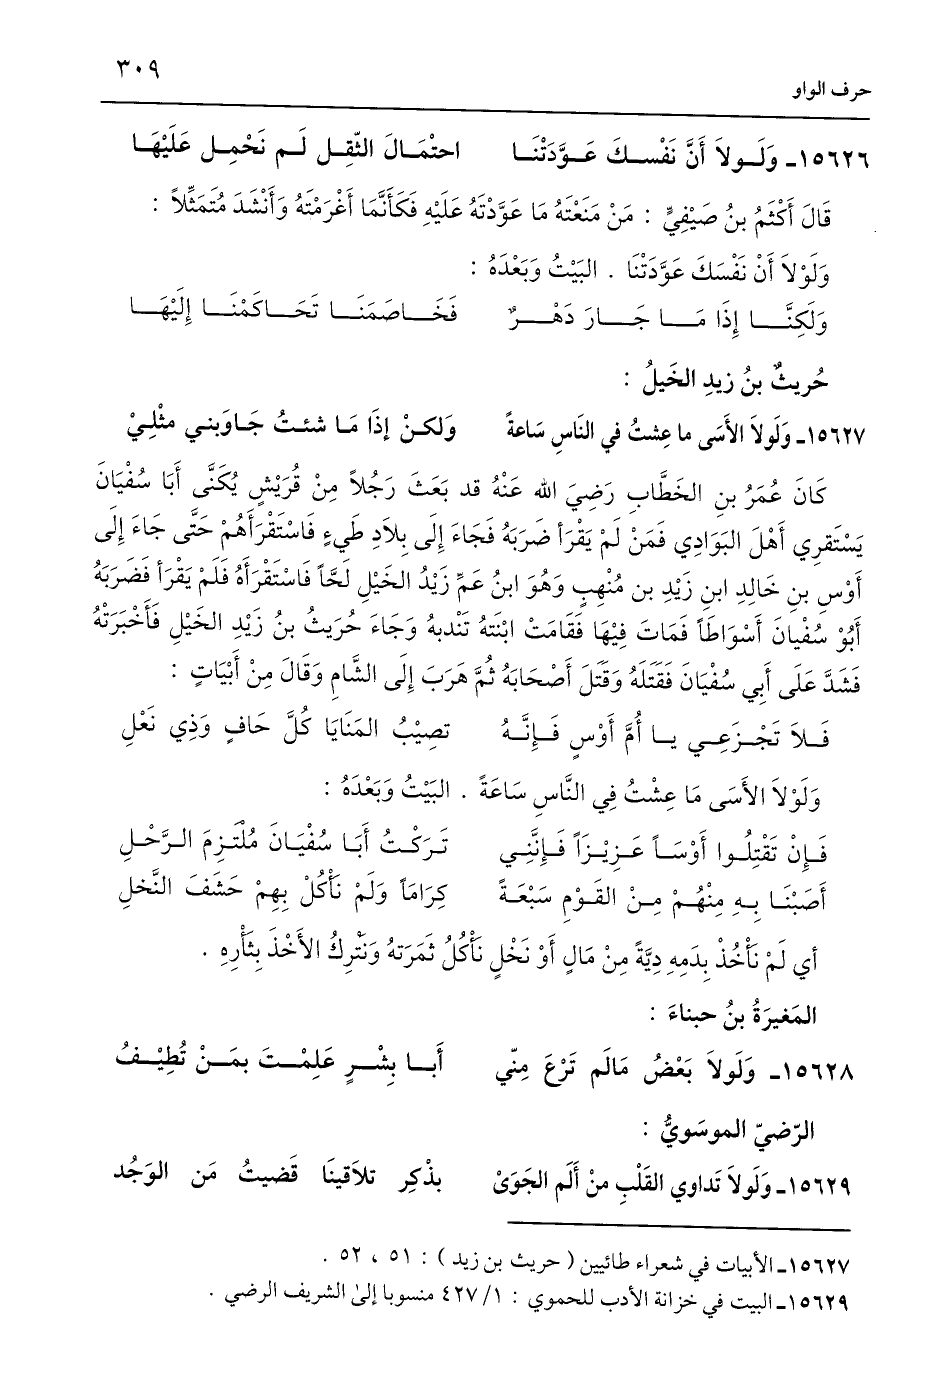 ٣٠٩
حرف الواو
١٥٦٢٦ـ وَلَـولاَ أَنَّ نَفْسـكَ عَـوَّدَتْنَـا احتْمـالَ الثّقِـل لَـم نَحْمِـل عَلَيْهَـا
قَالَ أَكْثَمُ بنُ صَيْفِيٍّ : مَنْ مَنَعْتَهُ مَا عَوَّدْتَهُ عَلَيْهِ فَكَأَنَّمَا أَغْرَمْتَهُ وَأَنْشَدَ مُتَمَثِّلاً :
وَلَوْلاَ أَنْ نَفْسَكَ عَوَّدَتْنَا . البَيْتُ وَبَعْدَهُ :
وَلَكِنَّـــا إِذَا مَـــا جَـــارَ دَهْـــرٌ فَخَـــاصَمَنَـــا تَحَـــاكَمْنَـــا إِلَيْهَـــا
حُريثٌ بنُ زيدِ الخَيلُ :
١٥٦٢٧ـ وَلَولاَ الأَسَى ما عِشتُ في النَاسِ سَاعةً وَلَكـنْ إذَا مَـا شئـتُ جَـاوَبني مثْلِـيْ
كَانَ عُمَرُ بنِ الخَطَّابِ رَضِيَ الله عَنْهُ قد بَعَثَ رَجُلاً مِنْ قُرَيْشٍ يُكَنَّى أَبَا سُفْيَانَ
يَسْتَقرِي أَهْلَ البَوَادِي فَمَنْ لَمْ يَقْرَأ ضَرَبَهُ فَجَاءَ إِلَى بِلاَدِ طَيءٍ فَاسْتَقْرَأَهُمْ حَتَّى جَاءَ إِلَى
أَوْسِ بنِ خَالِدِ ابنِ زَيْدِ بن مُنْهِبٍ وَهُوَ ابنُ عَمِّ زَيْدُ الخَيْلِ لَحَّاً فَاسْتَقْرَأَهُ فَلَمْ يَقْرَأ فَضَرَبَهُ
أَبُوْ سُفْيَانَ أَسْوَاطَاً فَمَاتَ فِيْهَا فَقَامَتْ ابْنَتهُ تَنْدبهُ وَجَاءَ حُرَيثُ بنُ زَيْدِ الخَيْلِ فَأَخْبَرَتْهُ
فَشَدَّ عَلَى أَبِي سُفْيَانَ فَقَتَلَهُ وَقَتَلَ أَصْحَابَهُ ثُمَّ هَرَبَ إِلَى الشَّامِ وَقَالَ مِنْ أَبْيَاتٍ :
فَـلاَ تَجْـزَعِـي يـا أُمَّ أَوْسٍ فَـإِنَّـهُ تصِيْبُ المَنَايَا كُلَّ حَافٍ وَذِي نَعْلِ
وَلَوْلاَ الأَسَى مَا عِشْتُ فِي النَّاسِ سَاعَةً . البَيْتُ وَبَعْدَهُ :
فَـإِنْ تَقْتِلُـوا أَوْسَـاً عَـزِيْـزَاً فَـإِنَّنِـي تَـرَكْـتُ أَبَـا سُفْيَـانَ مُلْتَـزِمَ الـرَّحْـلِ
أَصَبْنَـا بِـهِ مِنْهُـمْ مِـنْ القَـوْمِ سَبْعَـةً كِرَامَاً وَلَمْ نَأْكُلْ بِهِمْ حَشَفَ النَّخلِ
أي لَمْ نَأْخُذْ بِدَمِهِ دِيَّةً مِنْ مَالٍ أَوْ نَخْلٍ نَأْكُلُ ثَمَرَتهُ وَنَتْرِكُ الأَخْذَ بِثَأْرِهِ .
المَغيرَةُ بنُ حبناءَ :
١٥٦٢٨ـ وَلَولاَ بَعْضُ مَالَم تَرْعَ مِنّي أَبـا بِشْـرٍ عَلِمْـتَ بمَـنْ تُطِيْـفُ
الرّضيّ الموسَويُّ :
١٥٦٢٩ـ وَلَولاَ تَداوي القَلْبِ منْ أَلَم الجَوَىْ بذْكِر تلاَقينَا قَضيتُ مَن الوَجُد
١٥٦٢٧ـ الأبيات في شعراء طائيين ( حريث بن زيد ) : ٥١ ، ٥٢ .
١٥٦٢٩ـ البيت في خزانة الأدب للحموي : ١/ ٤٢٧ منسوبا إلىٰ الشريف الرضي .